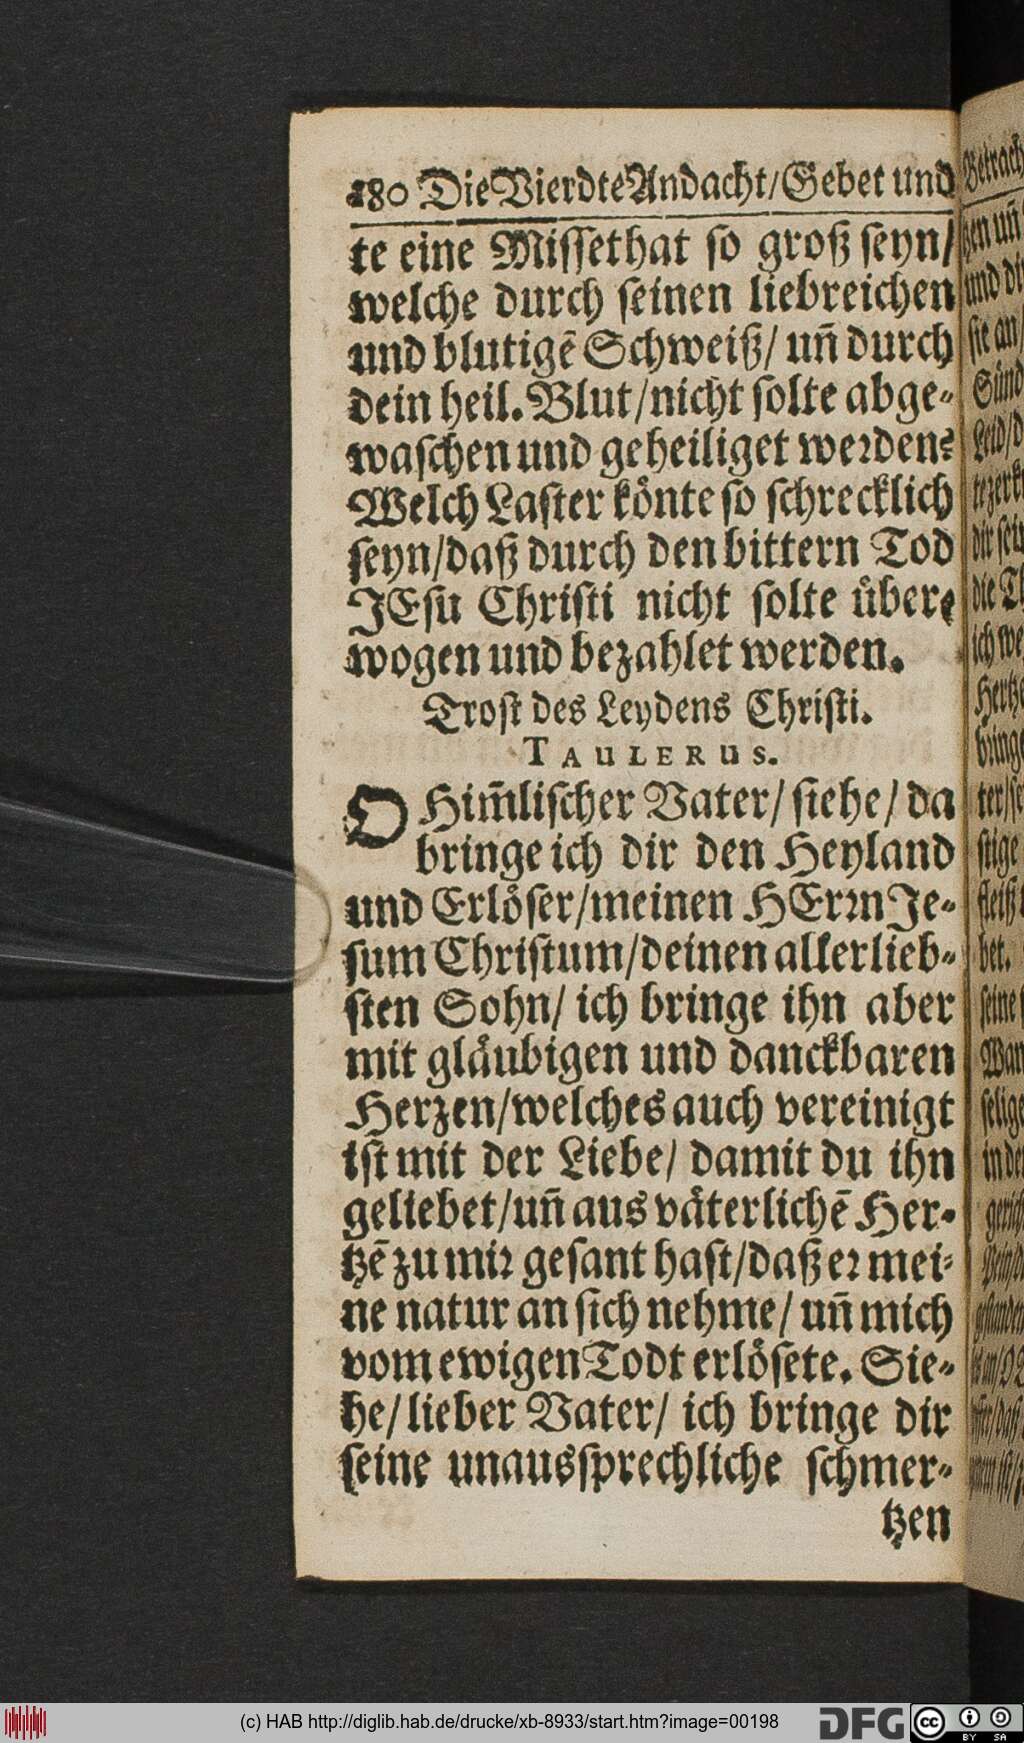 180 Die Vierdte Andacht/ Gebet und
te eine Missethat so groß seyn/
welche durch seinen liebreichen
und blutigē Schweiß/ uñ durch
dein heil. Blut/ nicht solte abge-
waschen und geheiliget werden?
Welch Laster könte so schrecklich
seyn/ daß durch den bittern Tod
JEsu Christi nicht solte über-
wogen und bezahlet werden.
Trost des Leydens Christi.
TAULERUS.
O Him̃lischer Vater/ siehe/ da
bringe ich dir den Heyland
und Erlöser/ meinen HErrn Je-
sum Christum/ deinen allerlieb-
sten Sohn/ ich bringe ihn aber
mit gläubigen und danckbaren
Herzen/ welches auch vereinigt
ist mit der Liebe/ damit du ihn
geliebet/ uñ aus väterlichē Her-
tzē zu mir gesant hast/ daß er mei-
ne natur an sich nehme/ uñ mich
vom ewigen Todt erlösete. Sie-
he/ lieber Vater/ ich bringe dir
seine unaussprechliche schmer-
tzen
(c) HAB http://diglib.hab.de/drucke/xb-8933/start.htm?image=00198
DFG
cc BY SA